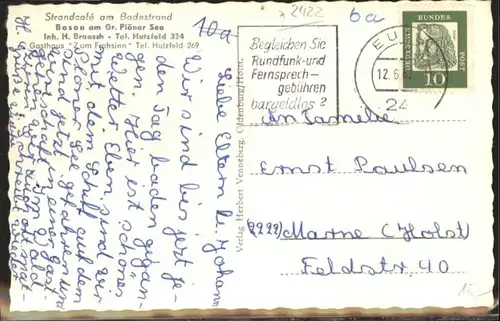 Strandcafé am Badestrand
Bosau am Gr. Plöner See
Inh. H. Braasch - Tel. Hutzfeld 334
Gasthaus "Zum Frohsinn" Tel. Hutzfeld 269
10a
2422
6a
Begleichen Sie
Rundfunk-und
Fernsprech-
gebühren
bargeldlos
EU
12.6.
24
DEUTSCHE
BUNDES
POST
10
Verlag Herbert Venneberg, Oldenburg/Holst.
Liebe Eltern u. Johann
Wir sind bis jetzt je-
den Tag baden gegan-
gen. Hier ist schönes
Wetter. Eben sind wir
mit dem Schiff auf dem
Plöner See gefahren und
sind jetzt in einer Gast-
wirtschaft
An Familie
Ernst Paulsen
(2222) Marne (Holst)
Feldstr. 40
15